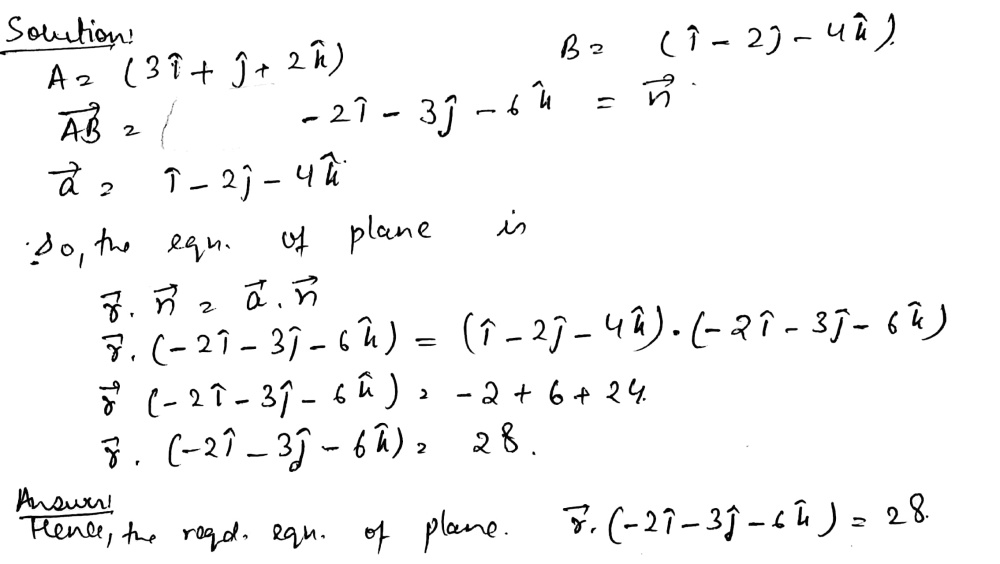 Solution:
A = (3î + ĵ + 2k̂) B = (î - 2ĵ - 4k̂).
AB⃗ = ( - 2î - 3ĵ - 6k̂ = n⃗.
a⃗ = î - 2ĵ - 4k̂.
So, the eqn. of plane is
r⃗. n⃗ = a⃗. n⃗
r⃗. (-2î - 3ĵ - 6k̂) = (î - 2ĵ - 4k̂).(-2î - 3ĵ - 6k̂)
r⃗ (-2î - 3ĵ - 6k̂) = -2 + 6 + 24.
r⃗. (-2î - 3ĵ - 6k̂) = 28.
Answer:
Hence, the reqd. eqn. of plane. r⃗.(-2î - 3ĵ - 6k̂) = 28.